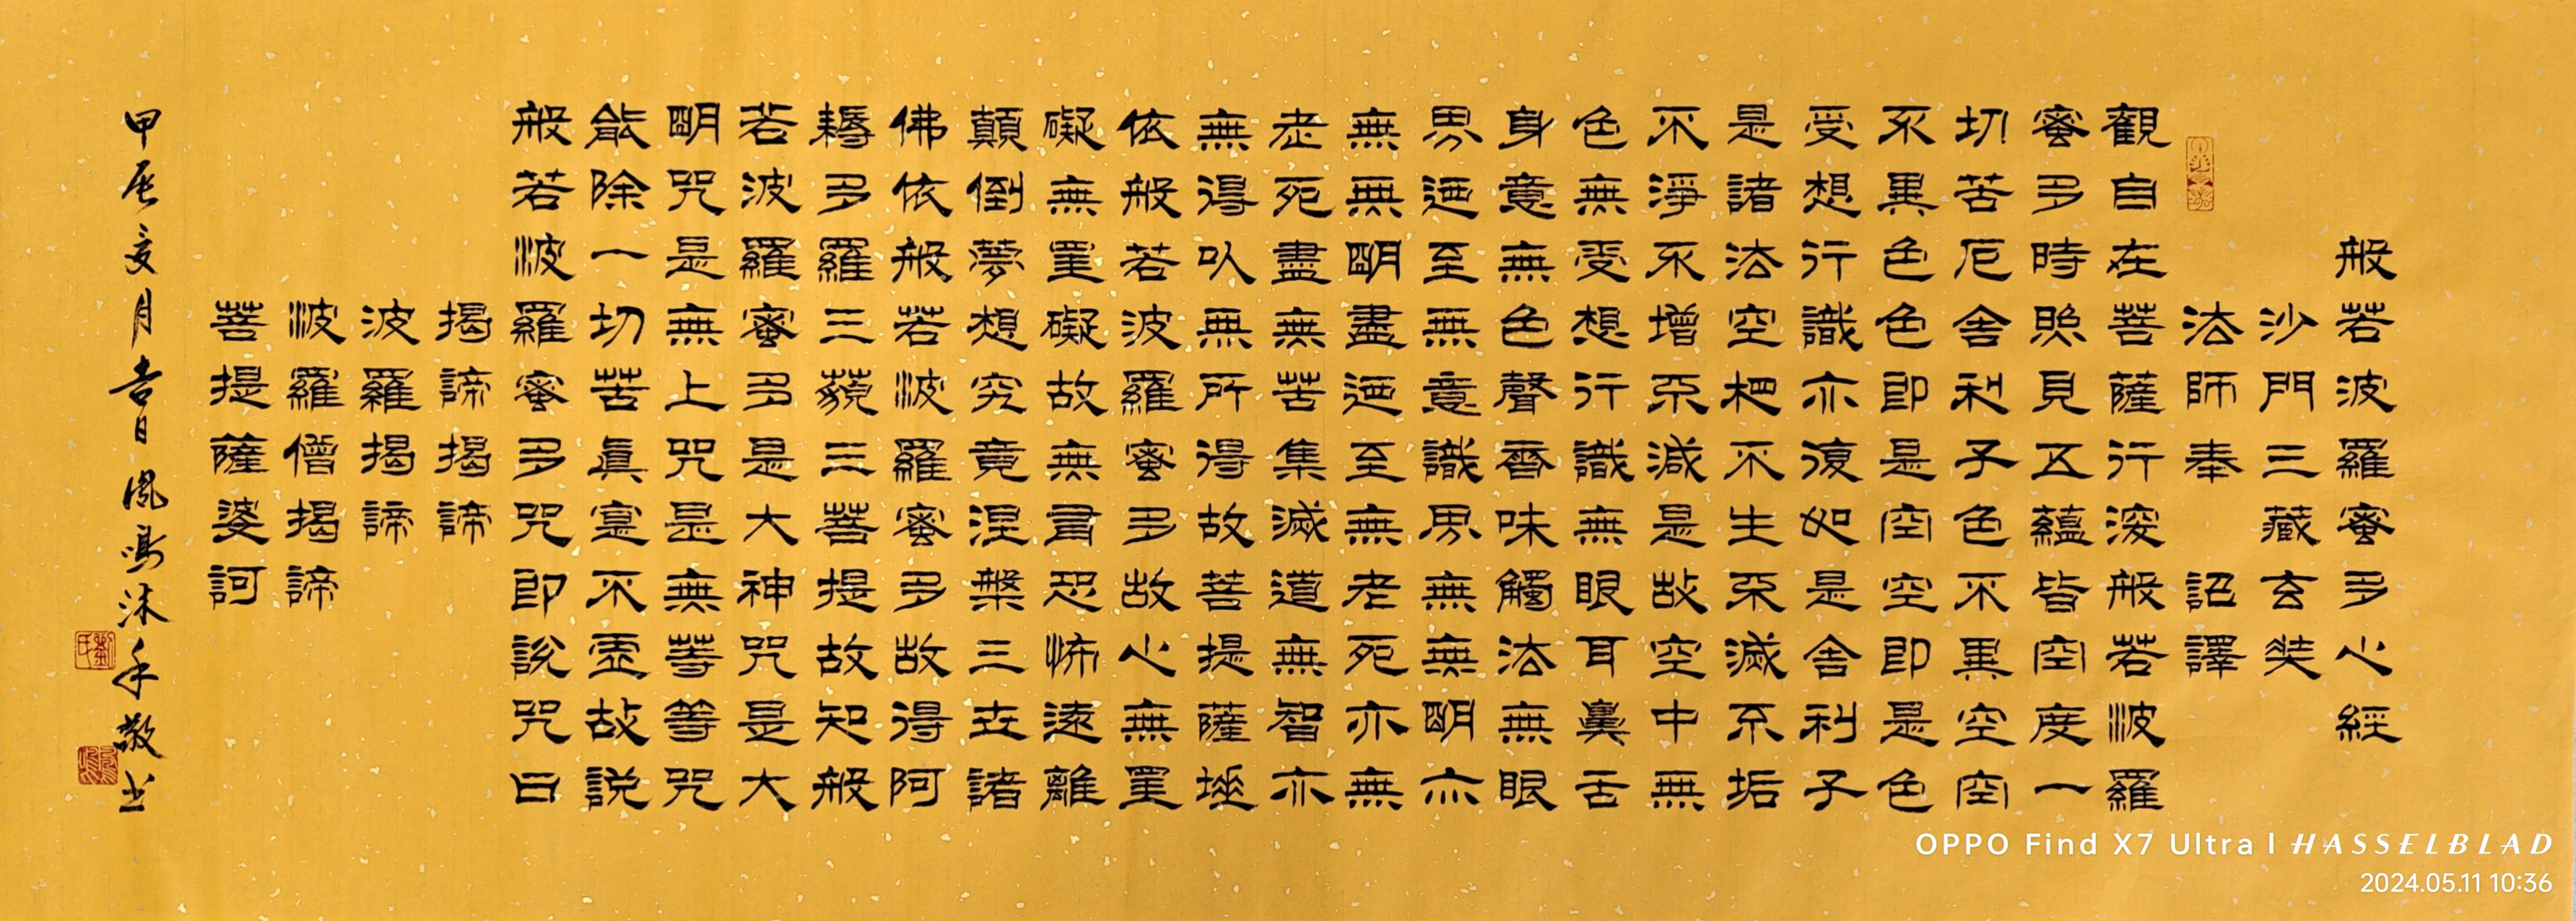 般若波羅蜜多心經
沙門三藏玄奘
法師奉 詔譯
觀自在菩薩行深般若波羅
蜜多時照見五蘊皆空度一
切苦厄舍利子色不異空空
不異色色即是空空即是色
受想行識亦復如是舍利子
是諸法空相不生不滅不垢
不淨不增不減是故空中無
色無受想行識無眼耳鼻舌
身意無色聲香味觸法無眼
界迺至無意識界無無明亦
無無明盡迺至無老死亦無
老死盡無苦集滅道無智亦
無得以無所得故菩提薩埵
依般若波羅蜜多故心無罣
礙無罣礙故無有恐怖遠離
顛倒夢想究竟涅槃三世諸
佛依般若波羅蜜多故得阿
耨多羅三藐三菩提故知般
若波羅蜜多是大神咒是大
明咒是無上咒是無等等咒
能除一切苦真實不虛故說
般若波羅蜜多咒即說咒曰
揭諦揭諦
波羅揭諦
波羅僧揭諦
菩提薩婆訶
甲辰夏月吉日鳳鳴沐手敬书
OPPO Find X7 Ultra | HASSELBLAD
2024.05.11 10:36